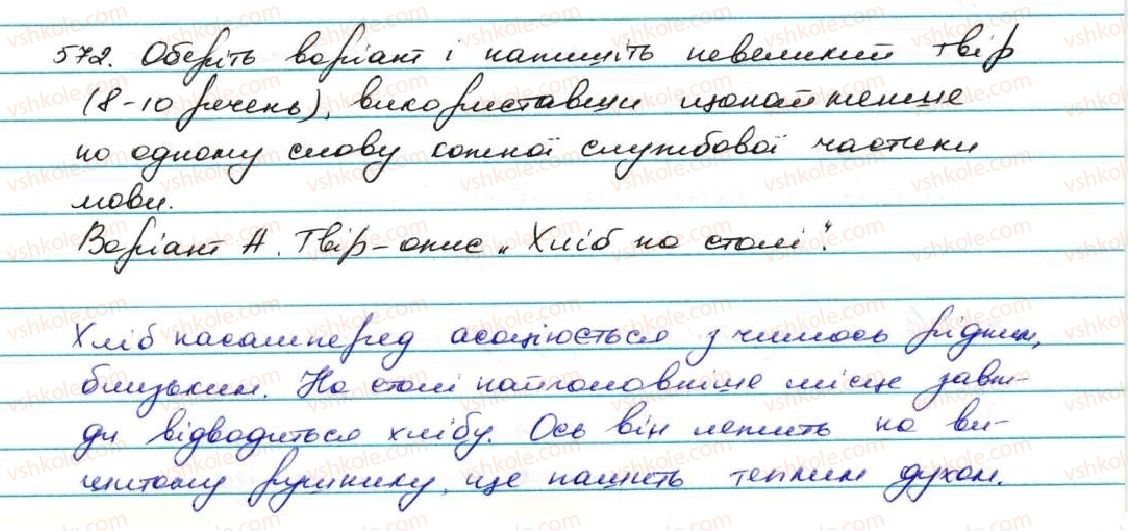 572. Оберіть варіант і напишіть невеликий твір
(8-10 речень), використавши щонайменше
по одному слову кожної службової частини
мови.
Варіант А. Твір-опис „Хліб на столі".
Хліб насамперед асоціюється з чимось рідним,
близьким. На столі найголовніше місце завж-
ди відводиться хлібу. Ось він лежить на ви-
шитому рушнику, ще пашить теплим духом.